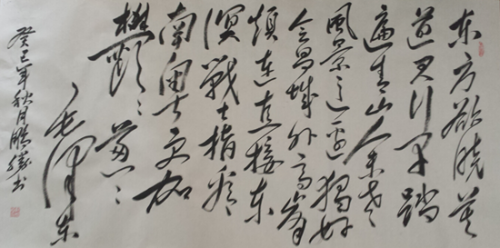 东方欲晓莫
道君行早踏
遍青山人未老
风景这边独好
会昌城外高峰
颠连直接东
溟戰士指看
南粤更加
鬱〻葱〻
毛泽东
癸巳年秋月鹏书